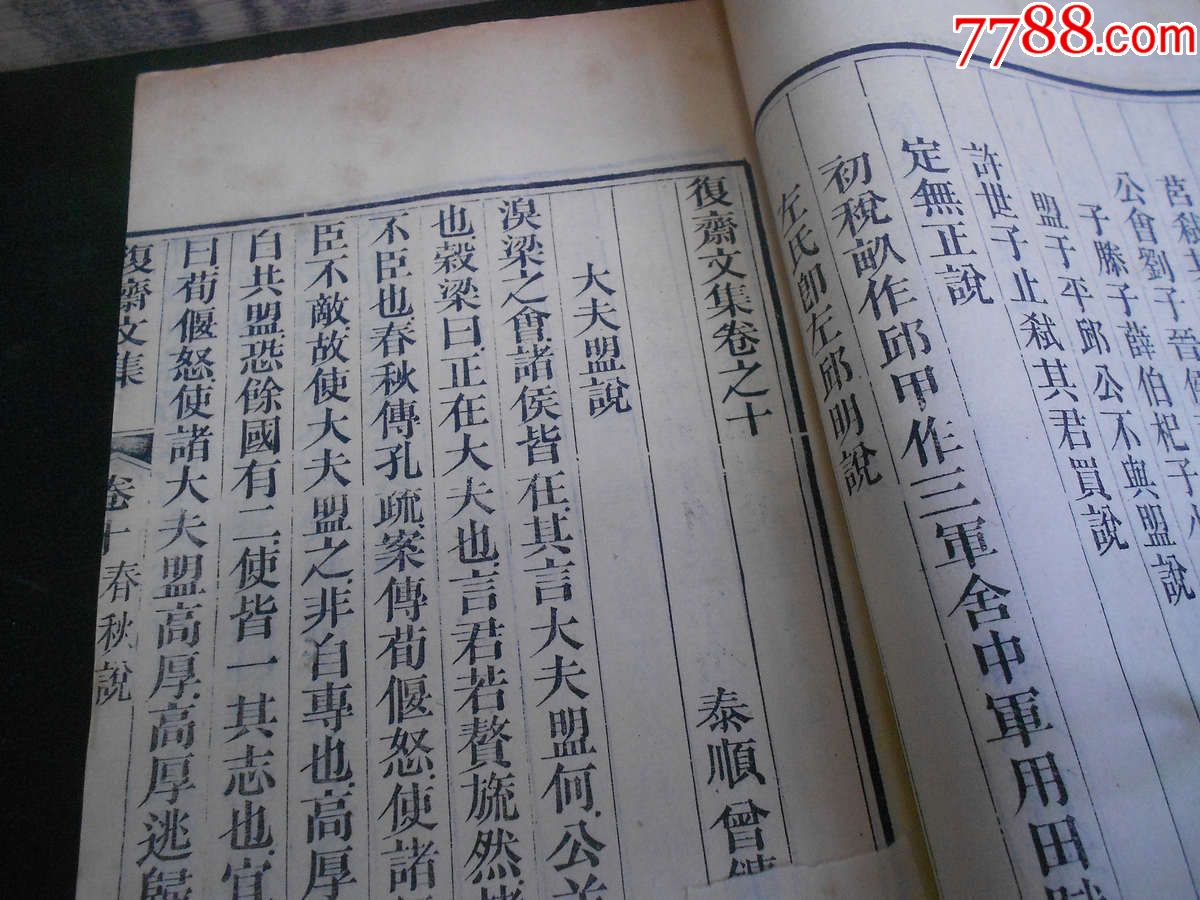 7788.com
莒
公會劉子晉
子滕子薛伯杞子
盟于平邱公不與盟說
許世子止弑其君買說
定無正說
初稅畝作邱甲作三軍舍中軍用田
左氏卽左邱明說
復齋文集卷之十
泰順曾
大夫盟說
湨梁之會諸侯皆在其言大夫盟何公
也穀梁曰正在大夫也言君若贅旒然
不臣也春秋傳孔疏案傳荀偃怒使諸
臣不敵故使大夫盟之非自專也高厚
白共盟恐餘國有二使皆一其志也宜
曰荀偃怒使諸大夫盟高厚高厚逃歸
復齋文集
卷十 春秋說